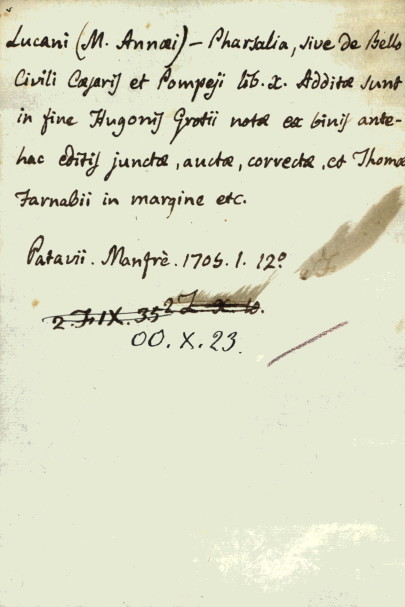 Lucani (M. Annæi) - Pharsalia, sive de Bello
Civili Cæsaris et Pompeji lib. X. Additæ sunt
in fine Hugonis Grotii notæ ex binis ante-
hac editis junctæ, auctæ, correctæ, et Thomæ
Farnabii in margine etc.
Patavii. Manfrè. 1705. 1. 12º
2. F. IX. 35 2 Z. X. 10.
OO. X. 23.